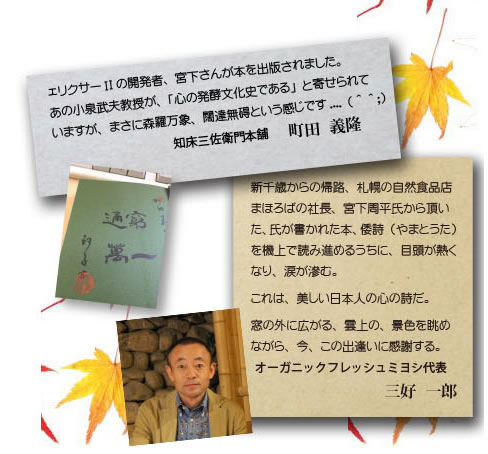 エリクサーIIの開発者、宮下さんが本を出版されました。
あの小泉武夫教授が、「心の発酵文化史である」と寄せられて
いますが、まさに森羅万象、闊達無碍という感じです....（＾＾;)
知床三佐衛門本舗　町田 義隆
通窮
萬一
新千歳からの帰路、札幌の自然食品店
まほろばの社長、宮下周平氏から頂い
た、氏が書かれた本、倭詩（やまとうた）
を機上で読み進めるうちに、目頭が熱く
なり、涙が滲む。
これは、美しい日本人の心の詩だ。
窓の外に広がる、雲上の、景色を眺め
ながら、今、この出逢いに感謝する。
オーガニックフレッシュミヨシ代表
三好 一郎